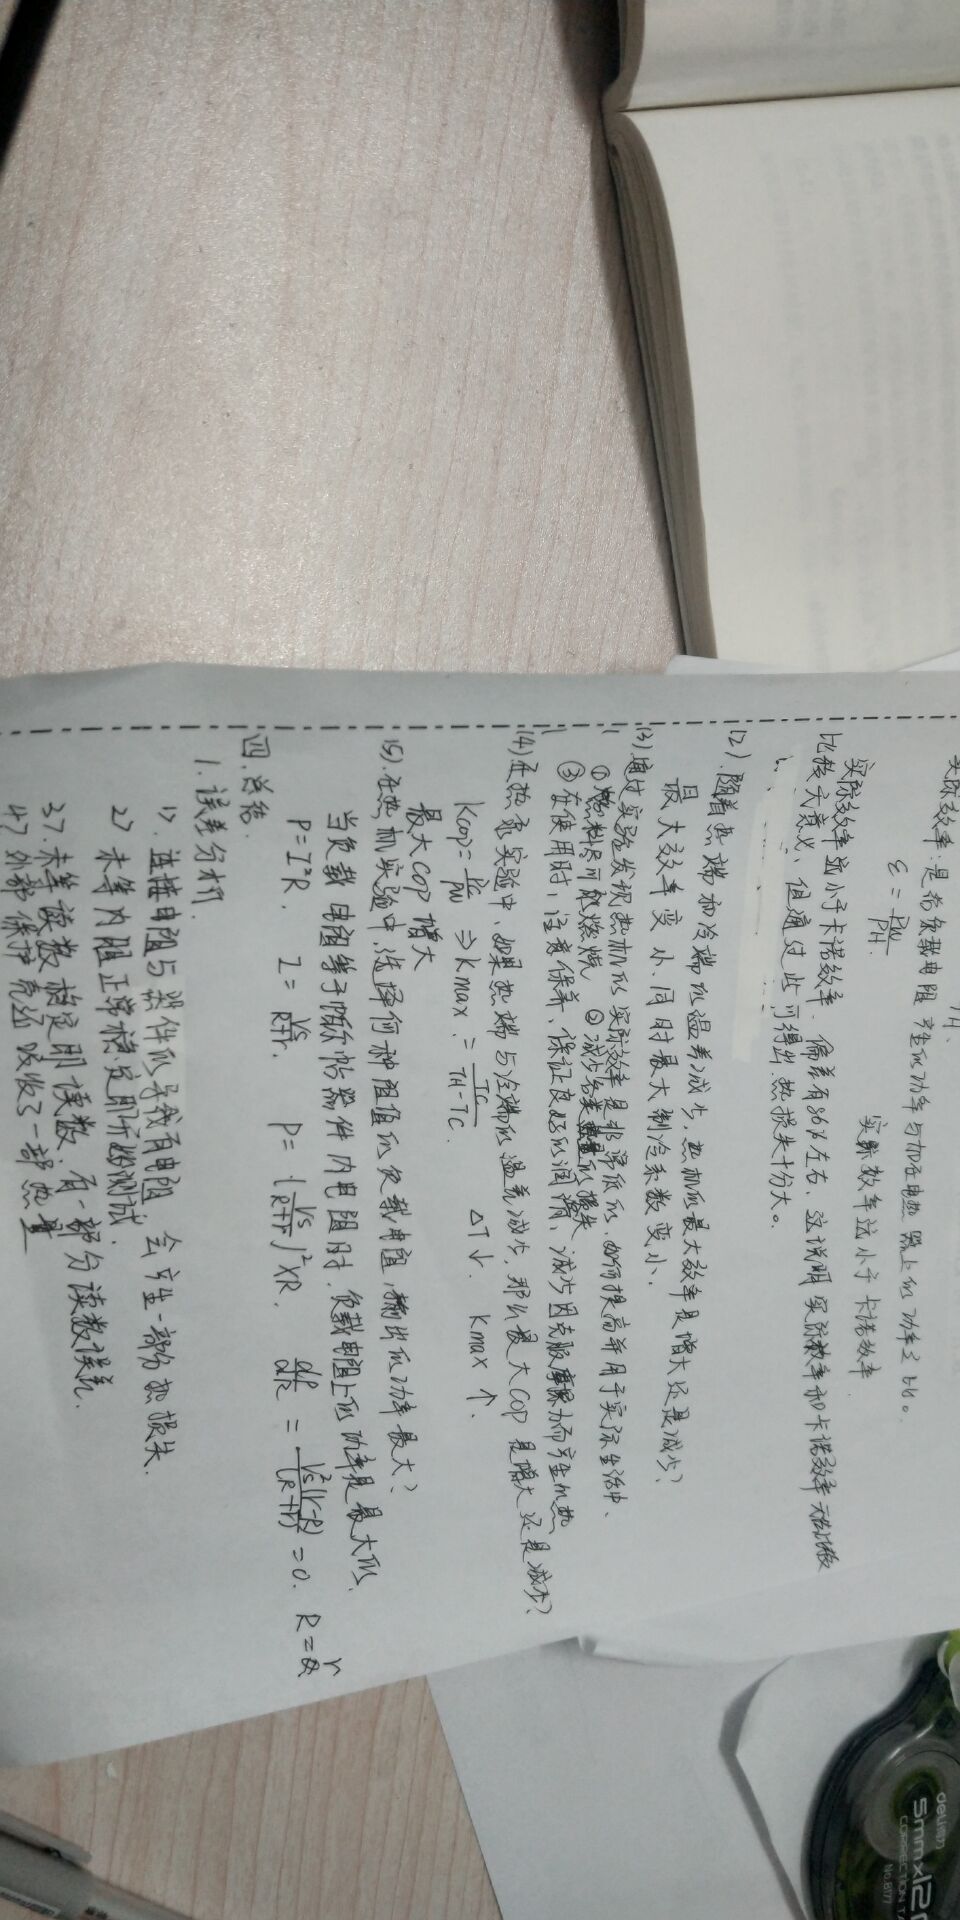 TH.
实际效率:是指负载电阻产生的功率与加在电热器上的功率之比。
ε = PW/PH.
实际效率远小于卡诺效率.
实际效率远小于卡诺效率.偏差有86%左右.这说明实际效率和卡诺效率无比较
比较无意义、但通过此可得出热损失十分大。
(2).随着热端和冷端的温差减少,热机的最大效率是增大还是减少?
最大效率变小.同时最大制冷系数变小.
(3)通过实验发现热机的实际效率是非常低的,如何提高并用于实际生活中.
①燃料尽可能燃烧 ②减少各类热量的损失
③在使用时,注意保养、保证良好的润滑、减少因克服摩擦力而产生的热
(4)在热泵实验中、如果热端与冷端的温差减少,那么最大COP是增大还是减少?
Kcop = PC/PW ⇒ Kmax = TC/(TH-TC). ΔT↓. Kmax ↑.
最大COP增大
(5).在热机实验中,选择何种阻值的负载电阻,输出的功率最大?
当负载电阻等于帕尔帖器件内电阻时.负载电阻上的功率是最大的.
P=I²R. I = VS/(R+r). P = (VS/(R+r))²×R. dP/dR = VS²(r-R)/(R+r) = 0. R = r
四.总结.
1.误差分析.
1>.连接电阻与器件的导线有电阻.会产生一部分热损失.
2> 未等内阻正常稳定即开始测试.
3>.未等读数稳定即读数.有一部分读数误差.
4> 外部保护壳还吸收了一部热量
deli得力
5mm×12
CORRECTION TA
No.8177